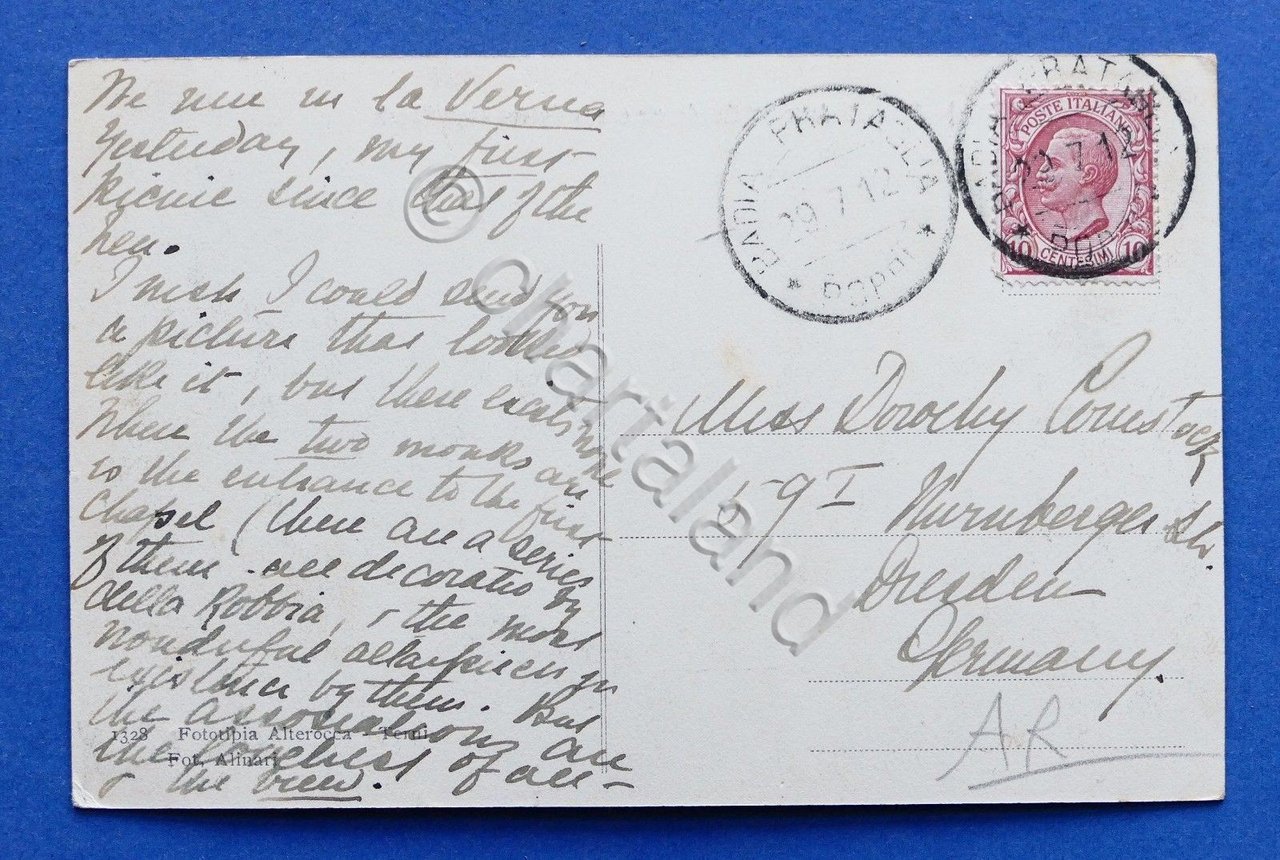 We were in la Verna
yesterday, my first
picnic since that of the
hen.
I wish I could send you
a picture that looked
like it, but there exists none
Where the two monks are
is the entrance to the first
chapel (there are a series
of them - all decorated by
della Robbia, & the most
wonderful altarpieces in
existence by them. But
the associations are
the loveliest of all -
& the view.
1328 Fototipia Alterocca - Terni
Fot. Alinari
BADIA PRATAGLIA
29 7 12
* POPPI *
BADIA PRATAGLIA
29 7 12
* POPPI
POSTE ITALIANE
10 CENTESIMI 10
Miss Dorothy Comstock
59 I Nurnberger Str.
Dresden
Germany.
AR
© chartaland